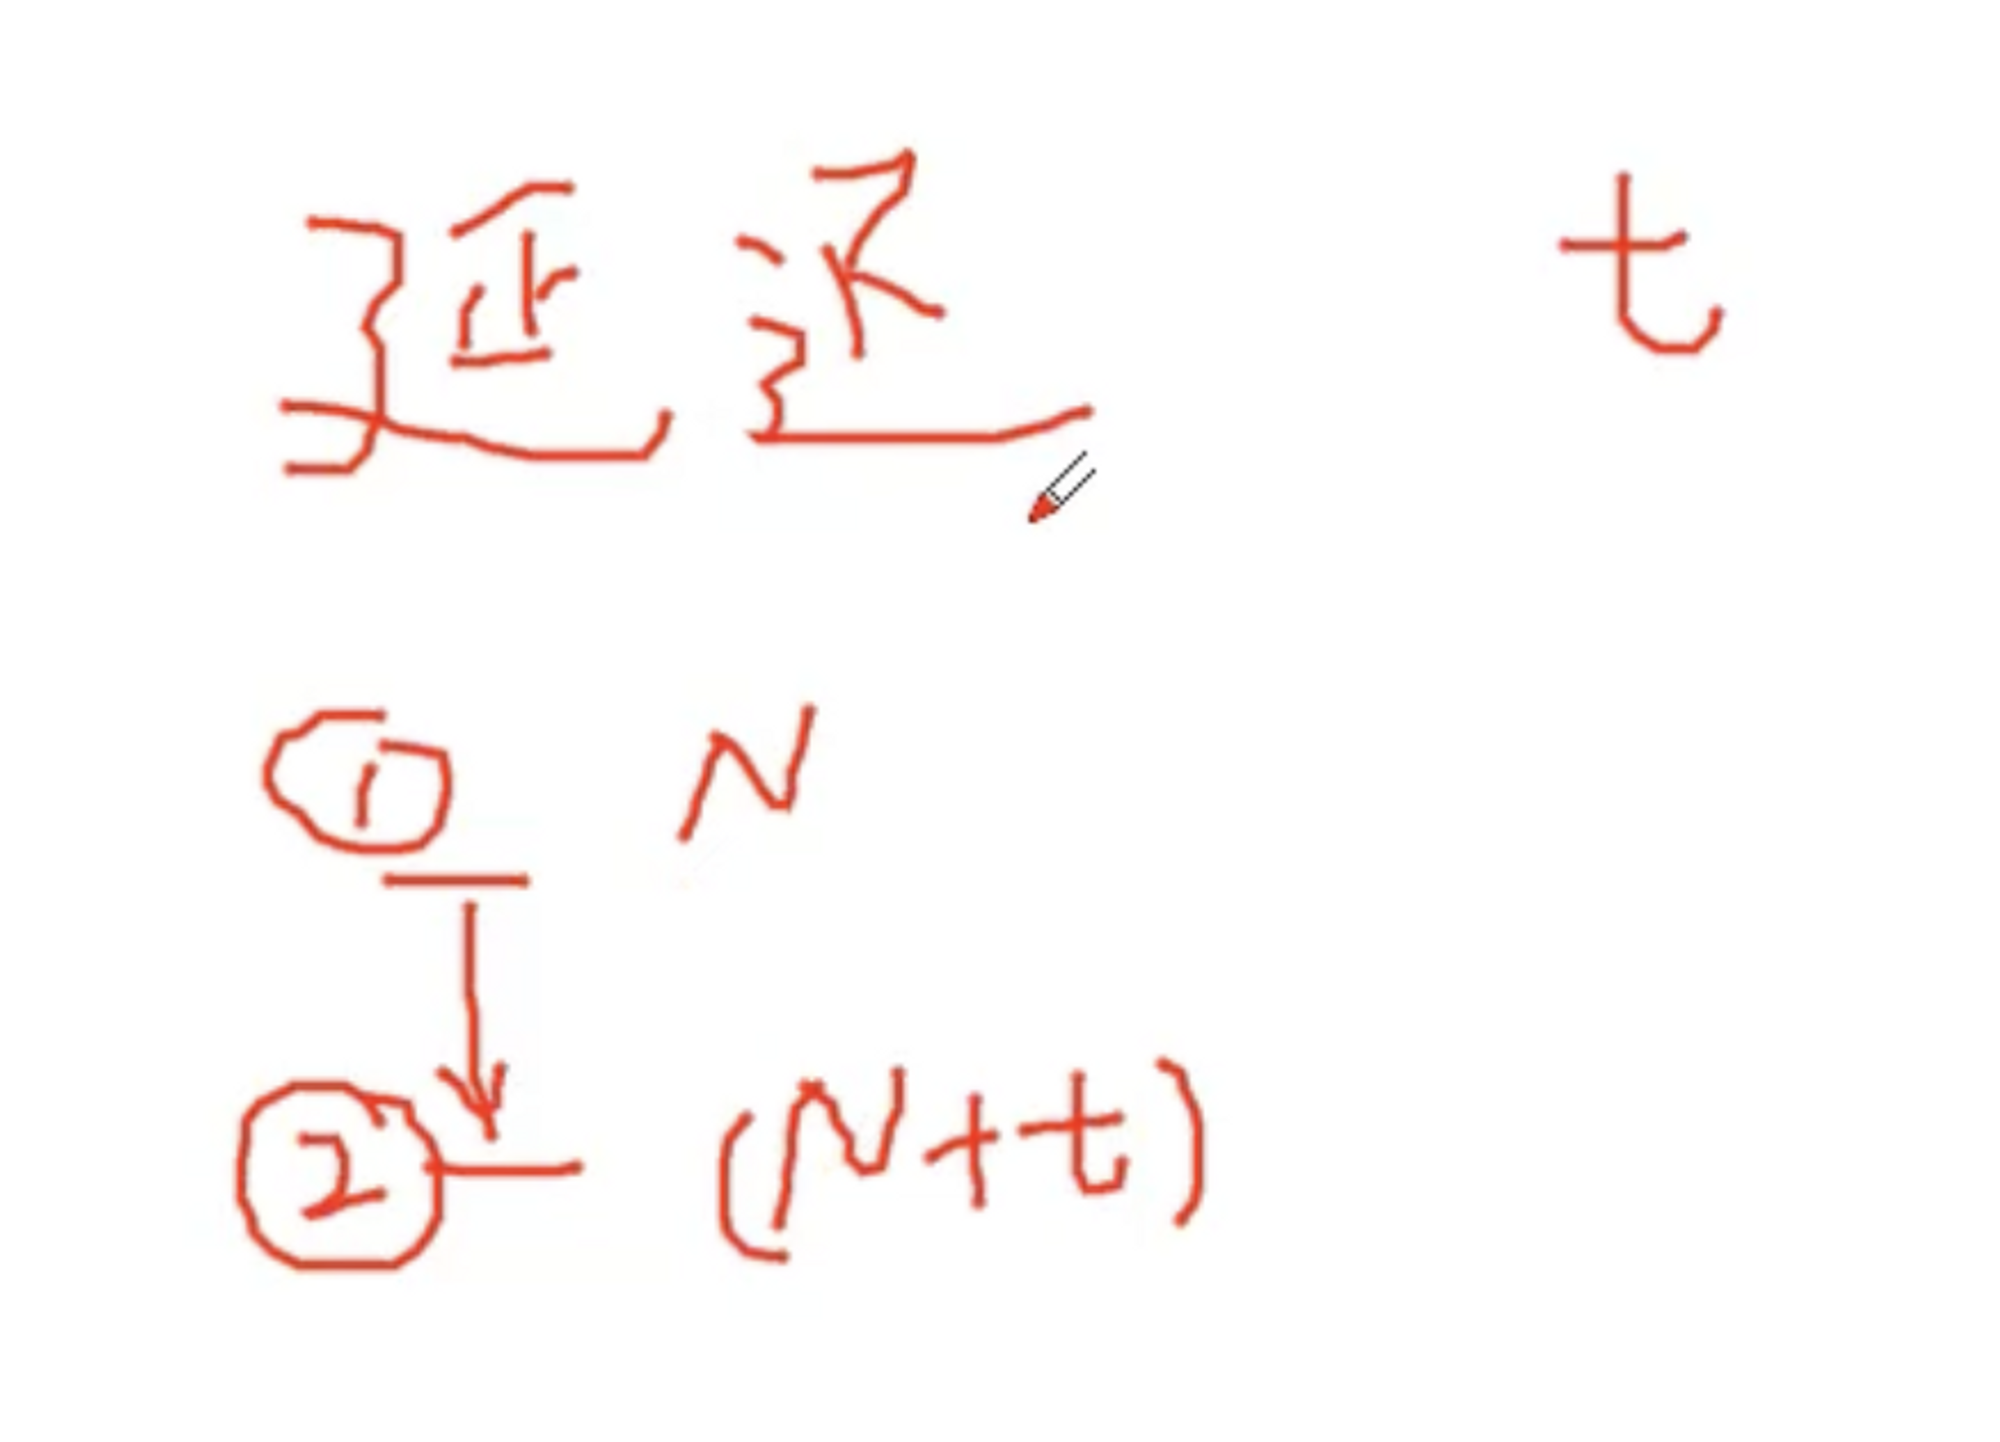 延迟 t
① N
② (N+t)